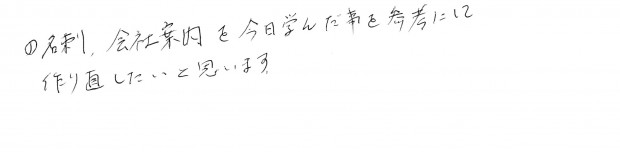 ①名刺、会社案内を今日学んだ事を参考にして
作り直したいと思います